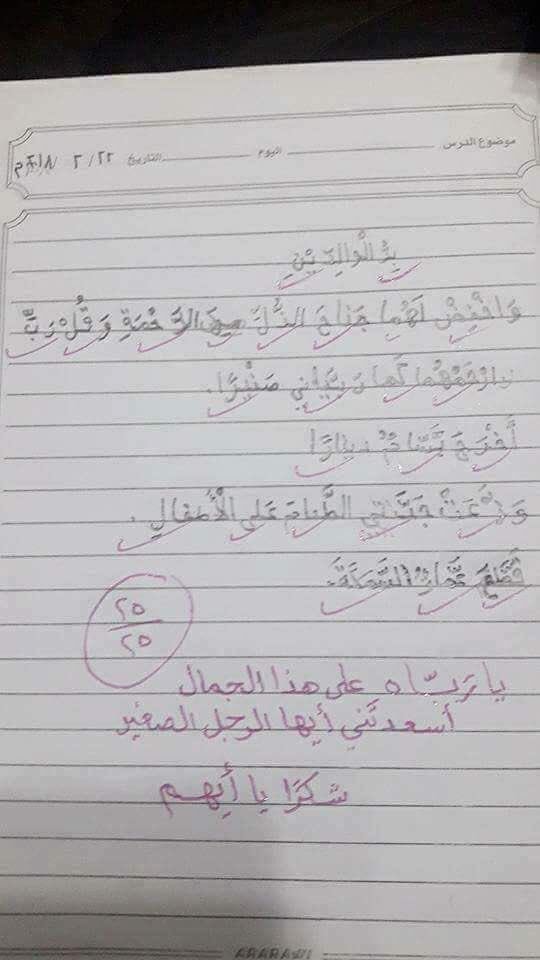 موضوع الدرس اليوم التاريخ ٢٢ / ٢ / ٢٠١٨م
بِرُّ الْوالِدَيْنِ
وَاخْفِضْ لَهُما جَناحَ الذُّلِّ مِنَ الرَّحْمَةِ وَقُلْ رَبِّ
ارْحَمْهُما كَما رَبَّياني صَغيرًا.
أَخْرَجَ بَسّامٌ دينارًا
وَزَّعَتْ جَدَّتي الطَّعامَ عَلى الْأَطْفالِ.
قَطَّعَ السَّمَكَةَ.
٢٥
٢٥
يا ربّاه على هذا الجمال
أسعدتني أيها الرجل الصغير
شكرًا يا أيهم
ARARAWI